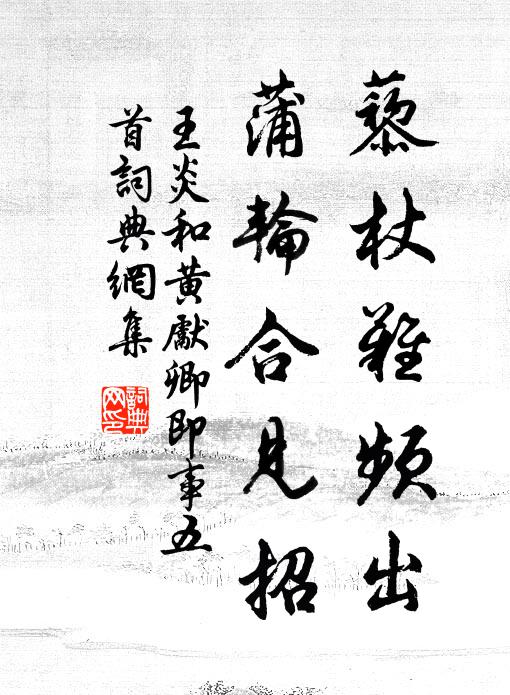 藜杖難頻出
蒲輪合見招
王炎和黃獻卿即事五
首詞典網集
詞典
网印